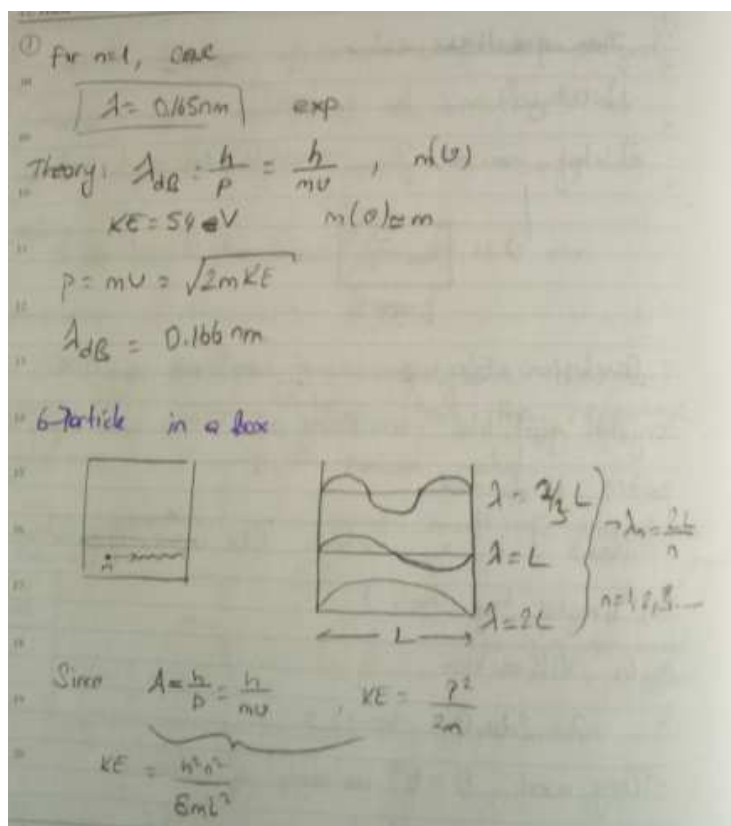 ① For n=1,
λ = 0.165nm exp
Theory: λdB = h/p = h/mυ , m(υ)
KE = 54 eV m(υ)≃m
p = mυ = √2mKE
λdB = 0.166 nm
6-Particle in a box
m
λ = 2/3 L
λ = L
λ = 2L
→ λn = 2L/n
n=1,2,3....
L
Since λ = h/p = h/mυ , KE = p²/2m
KE = n²h²/8mL²